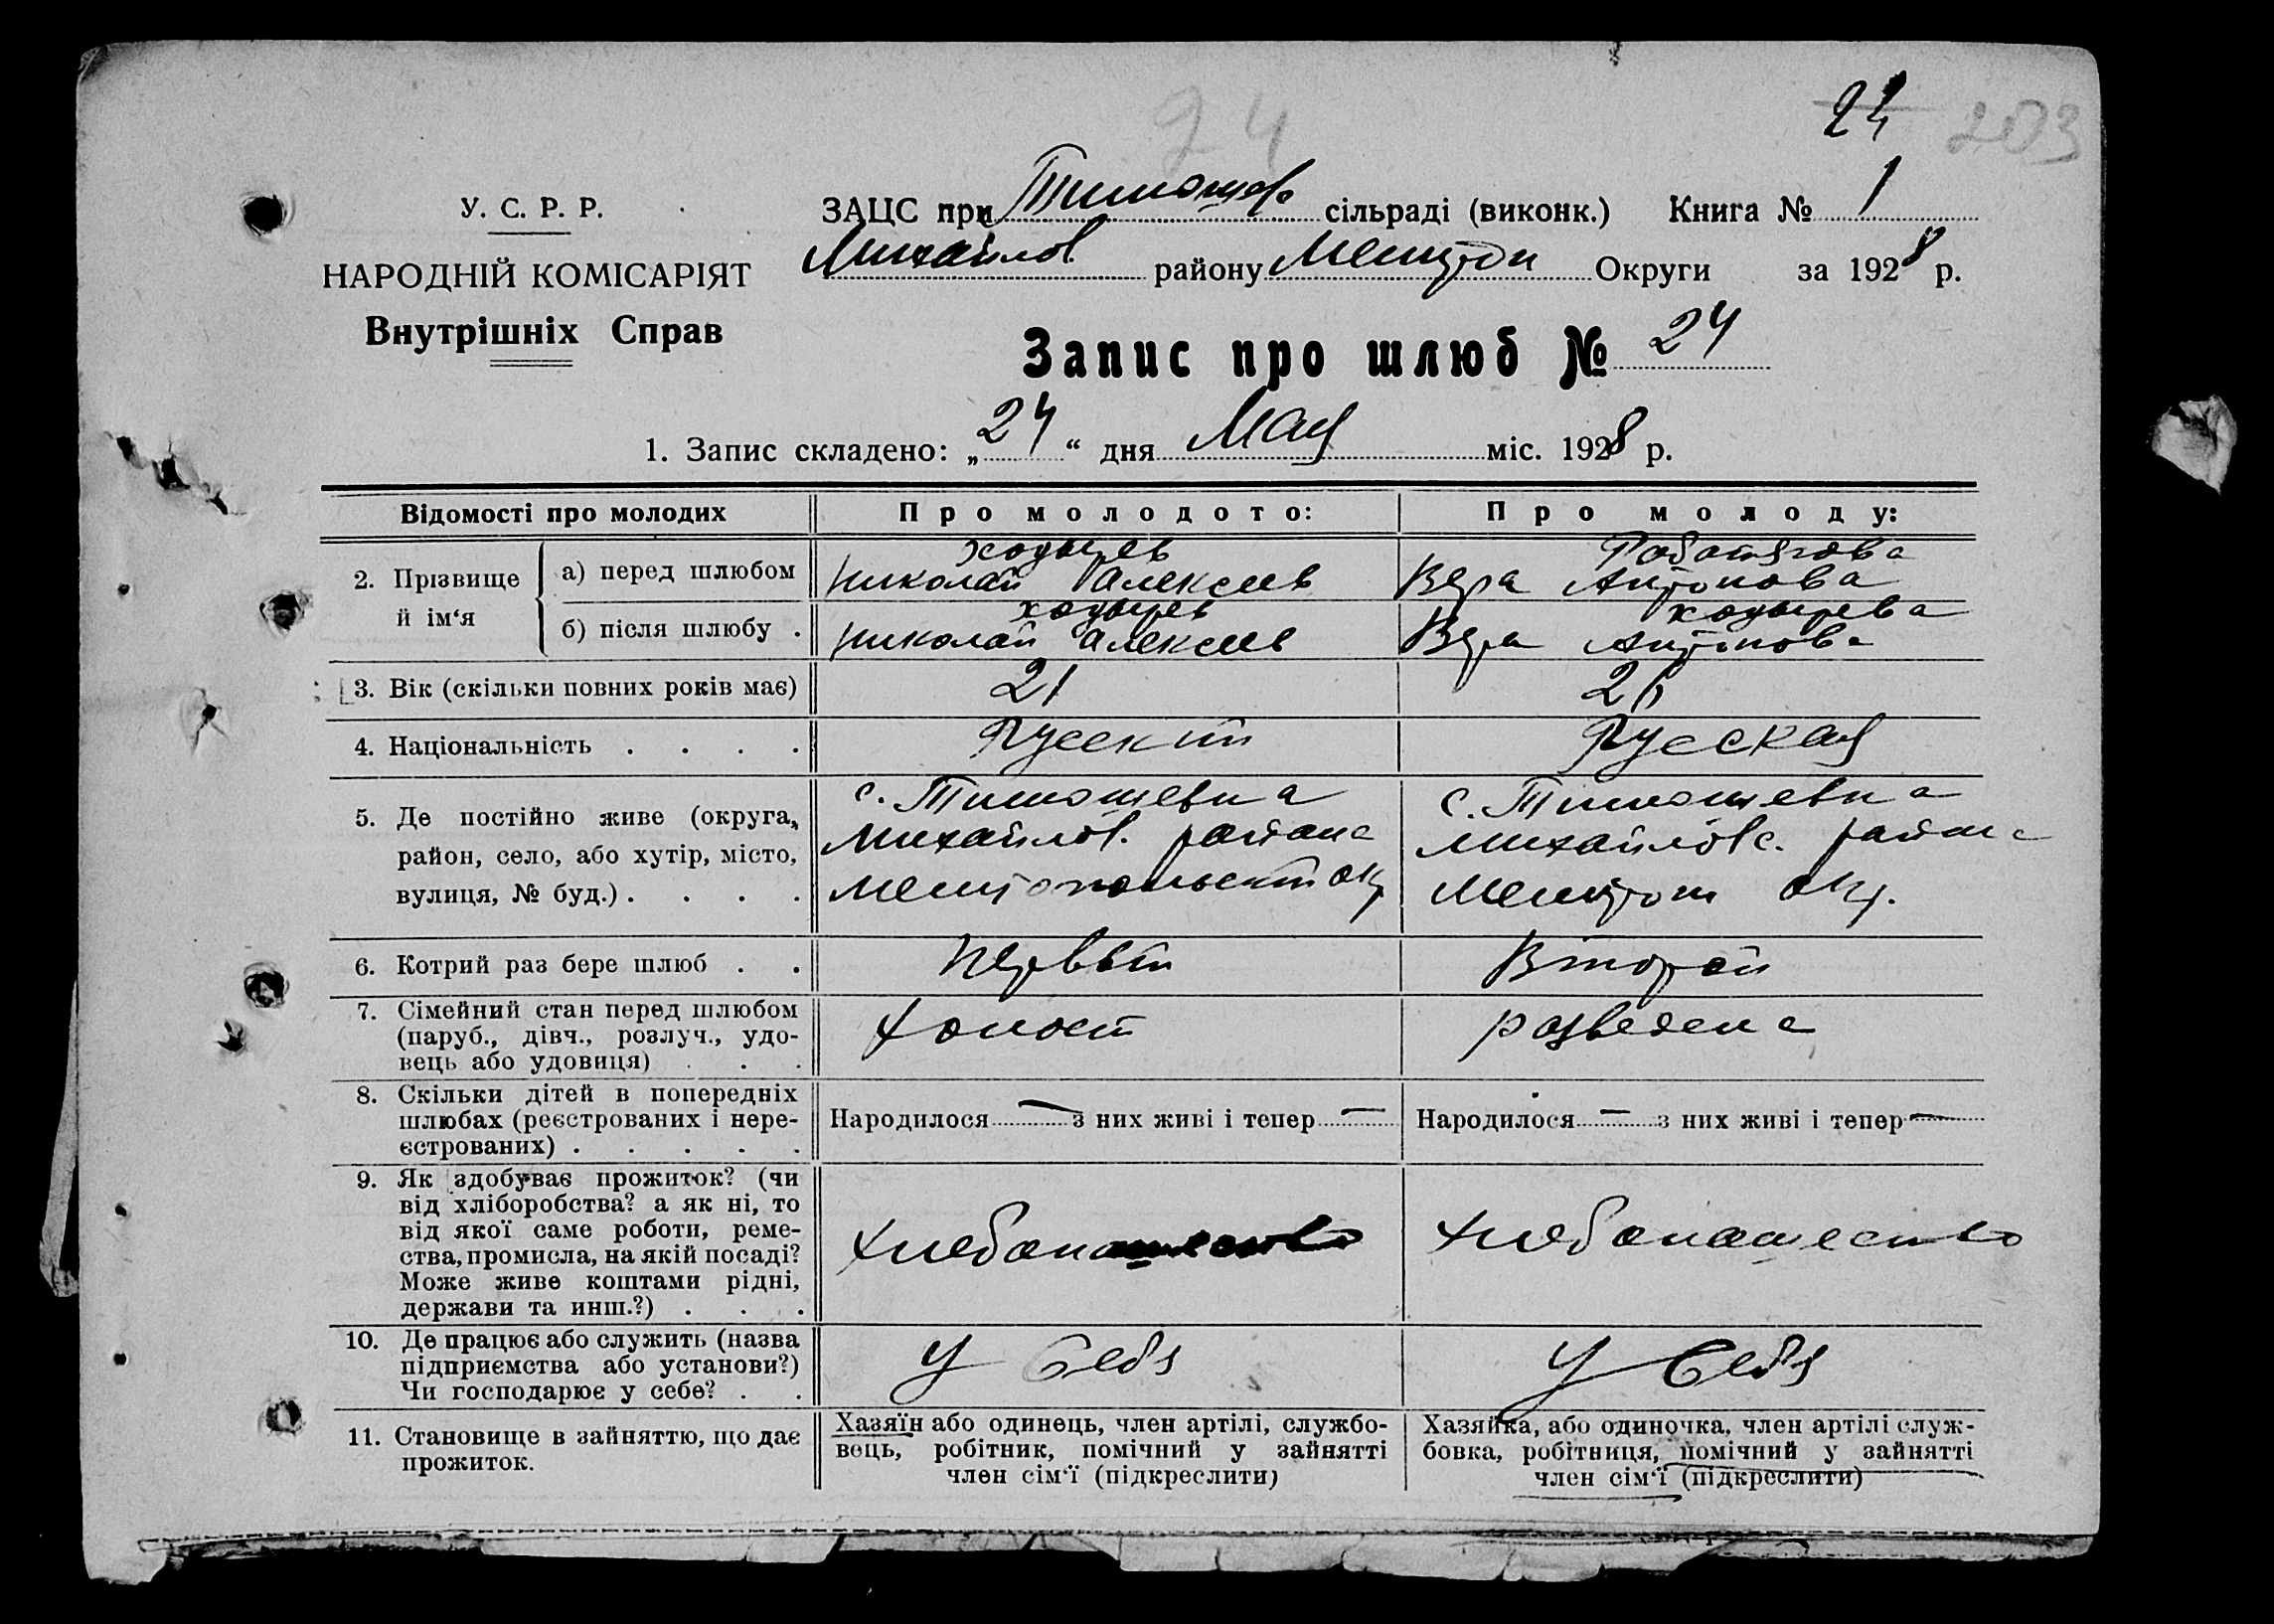 24 203
24
У. С. Р. Р.
ЗАЦС при Тимошев сільраді (виконк.) Книга № 1
НАРОДНІЙ КОМІСАРІЯТ
Михайлов району Мелитоп Округи за 1928 р.
Внутрішніх Справ
Запис про шлюб № 24
1. Запис складено: „24“ дня Мая міс. 1928 р.
Відомості про молодих
Про молодого:
Про молоду:
2. Прізвище й ім‘я
а) перед шлюбом
Ходырев
Николай Алексеев
Вера Антонова
б) після шлюбу .
Ходырев
Николай Алексеев
Ходырева
Вера Антонова
3. Вік (скільки повних років має)
21
4. Національність . . . .
Русский
Русская
5. Де постійно живе (округа, район, село, або хутір, місто, вулиця, № буд.) . . . .
с. Тимошевка
Михайлов. района
Мелитопольской окр
с. Тимошевка
Михайловс. района
Мелитоп окр.
6. Котрий раз бере шлюб . .
Первый
Второй
7. Сімейний стан перед шлюбом
(паруб., дівч., розлуч., удо-
вець або удовиця) . . .
Холост
разведена
8. Скільки дітей в попередніх
шлюбах (реєстрованих і нере-
єстрованих) . . . . .
Народилося — з них живі і тепер —
Народилося — з них живі і тепер —
9. Як здобуває прожиток? (чи
від хліборобства? а як ні, то
від якої саме роботи, реме-
ства, промисла, на якій посаді?
Може живе коштами рідні,
держави та инш.?) . . .
Хлебопашество
Хлебопашество
10. Де працює або служить (назва
підприємства або установи?)
Чи господарює у себе? . .
У себя
У себя
11. Становище в зайняттю, що дає
прожиток.
Хазяїн або одинець, член артілі, службо-
вець, робітник, помічний у зайнятті
член сім‘ї (підкреслити)
Хазяйка, або одиночка, член артілі служ-
бовка, робітниця, помічний у зайнятті
член сім‘ї (підкреслити)